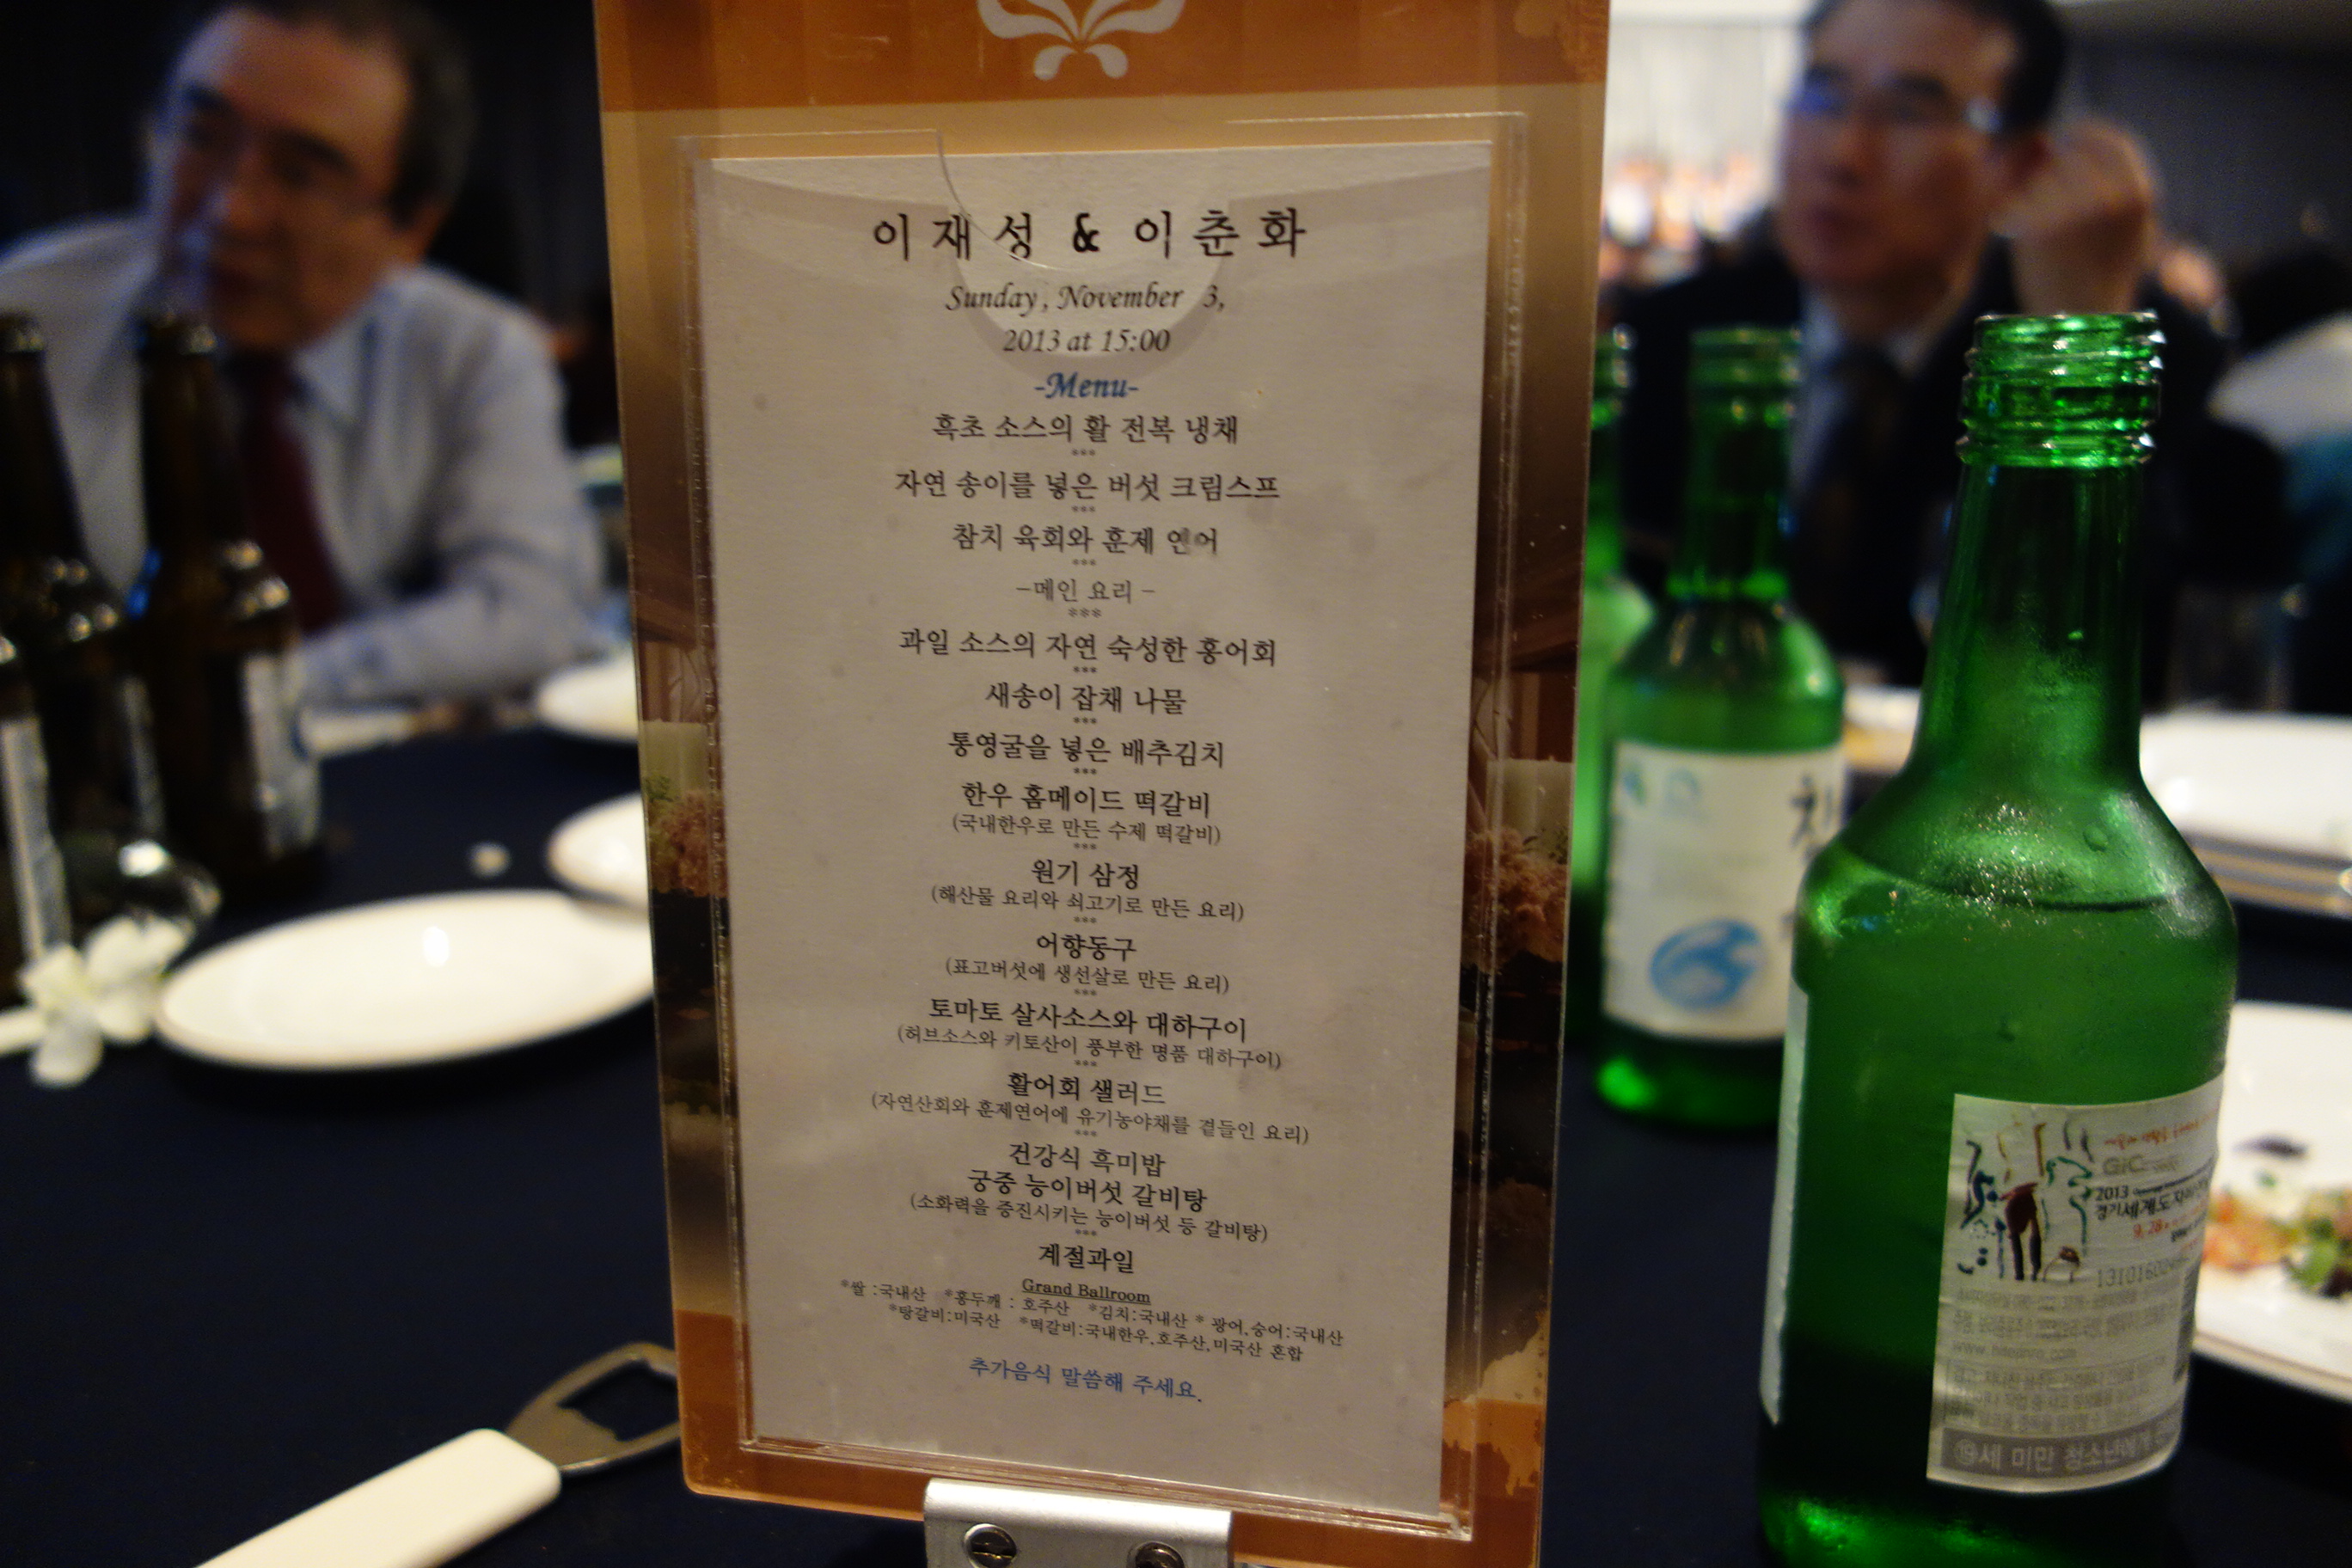 이재성 & 이춘화
Sunday, November 3,
2013 at 15:00
-Menu-
흑초 소스의 활 전복 냉채
***
자연 송이를 넣은 버섯 크림스프
***
참치 육회와 훈제 연어
***
-메인 요리-
***
과일 소스의 자연 숙성한 홍어회
***
새송이 잡채 나물
***
통영굴을 넣은 배추김치
***
한우 홈메이드 떡갈비
(국내한우로 만든 수제 떡갈비)
***
원기 삼정
(해산물 요리와 쇠고기로 만든 요리)
***
어향동구
(표고버섯에 생선살로 만든 요리)
***
토마토 살사소스와 대하구이
(허브소스와 키토산이 풍부한 명품 대하구이)
***
활어회 샐러드
(자연산회와 훈제연어에 유기농야채를 곁들인 요리)
***
건강식 흑미밥
궁중 능이버섯 갈비탕
(소화력을 증진시키는 능이버섯 등 갈비탕)
***
계절과일
Grand Ballroom
*쌀 :국내산 *홍두깨 : 호주산 *김치:국내산 * 광어,숭어:국내산
*탕갈비:미국산 *떡갈비:국내한우,호주산,미국산 혼합
추가음식 말씀해 주세요.
GiC
2013
경기세계도자
9. 28
19세 미만 청소년에게